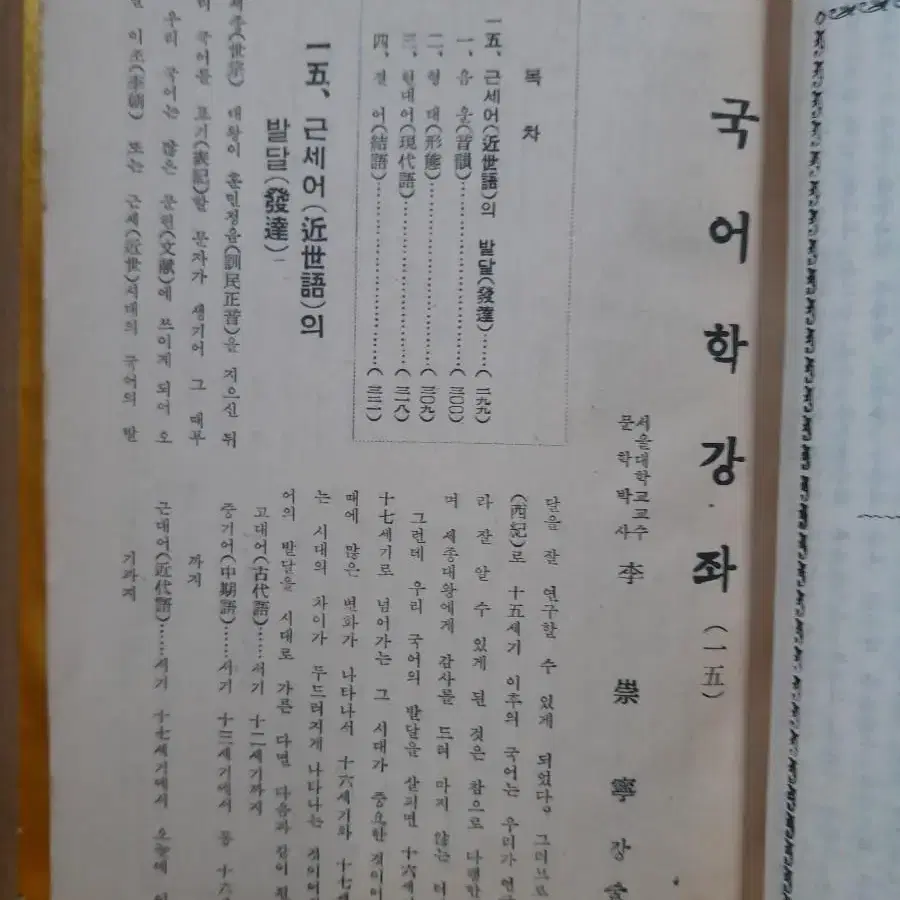 국어학강좌(一五)
서울대학교교수
문학박사
李崇寧 강술
목차
一五、근세어(近世語)의 발달(發達)……(二九九)
一、음운(音韻)……(三〇〇)
二、형태(形態)……(三〇九)
三、현대어(現代語)……(三一八)
四、결어(結語)……(三二一)
一五、근세어(近世語)의
발달(發達)
세종(世宗) 대왕이 훈민정음(訓民正音)을 지으신 뒤
국어를 표기(表記)할 문자가 생기어 그 때부
우리 국어는 많은 문헌(文献)에 쓰이게 되어 오
이조(李朝) 또는 근세(近世)시대의 국어의 발
달을 잘 연구할 수 있게 되었다。그러므로
(西紀)로 十五세기 이후의 국어는 우리가 연
라 잘 알 수 있게 된 것은 참으로 다행한
며 세종대왕에게 감사를 드려 마지 않는 터
그런데 우리 국어의 발달을 살피면 十六세
十七세기로 넘어가는 그 시대가 중요한 것이어
때에 많은 변화가 나타나서 十六세기와 十七세
는 시대의 차이가 두드러지게 나타나는 것이어
어의 발달을 시대로 가른 다면 다음과 같이 된
고대어(古代語)……서기 十二세기까지
중기어(中期語)……서기 十三세기에서 동 十六
까지
근대어(近代語)……서기 十七세기에서 오늘에 이
기까지